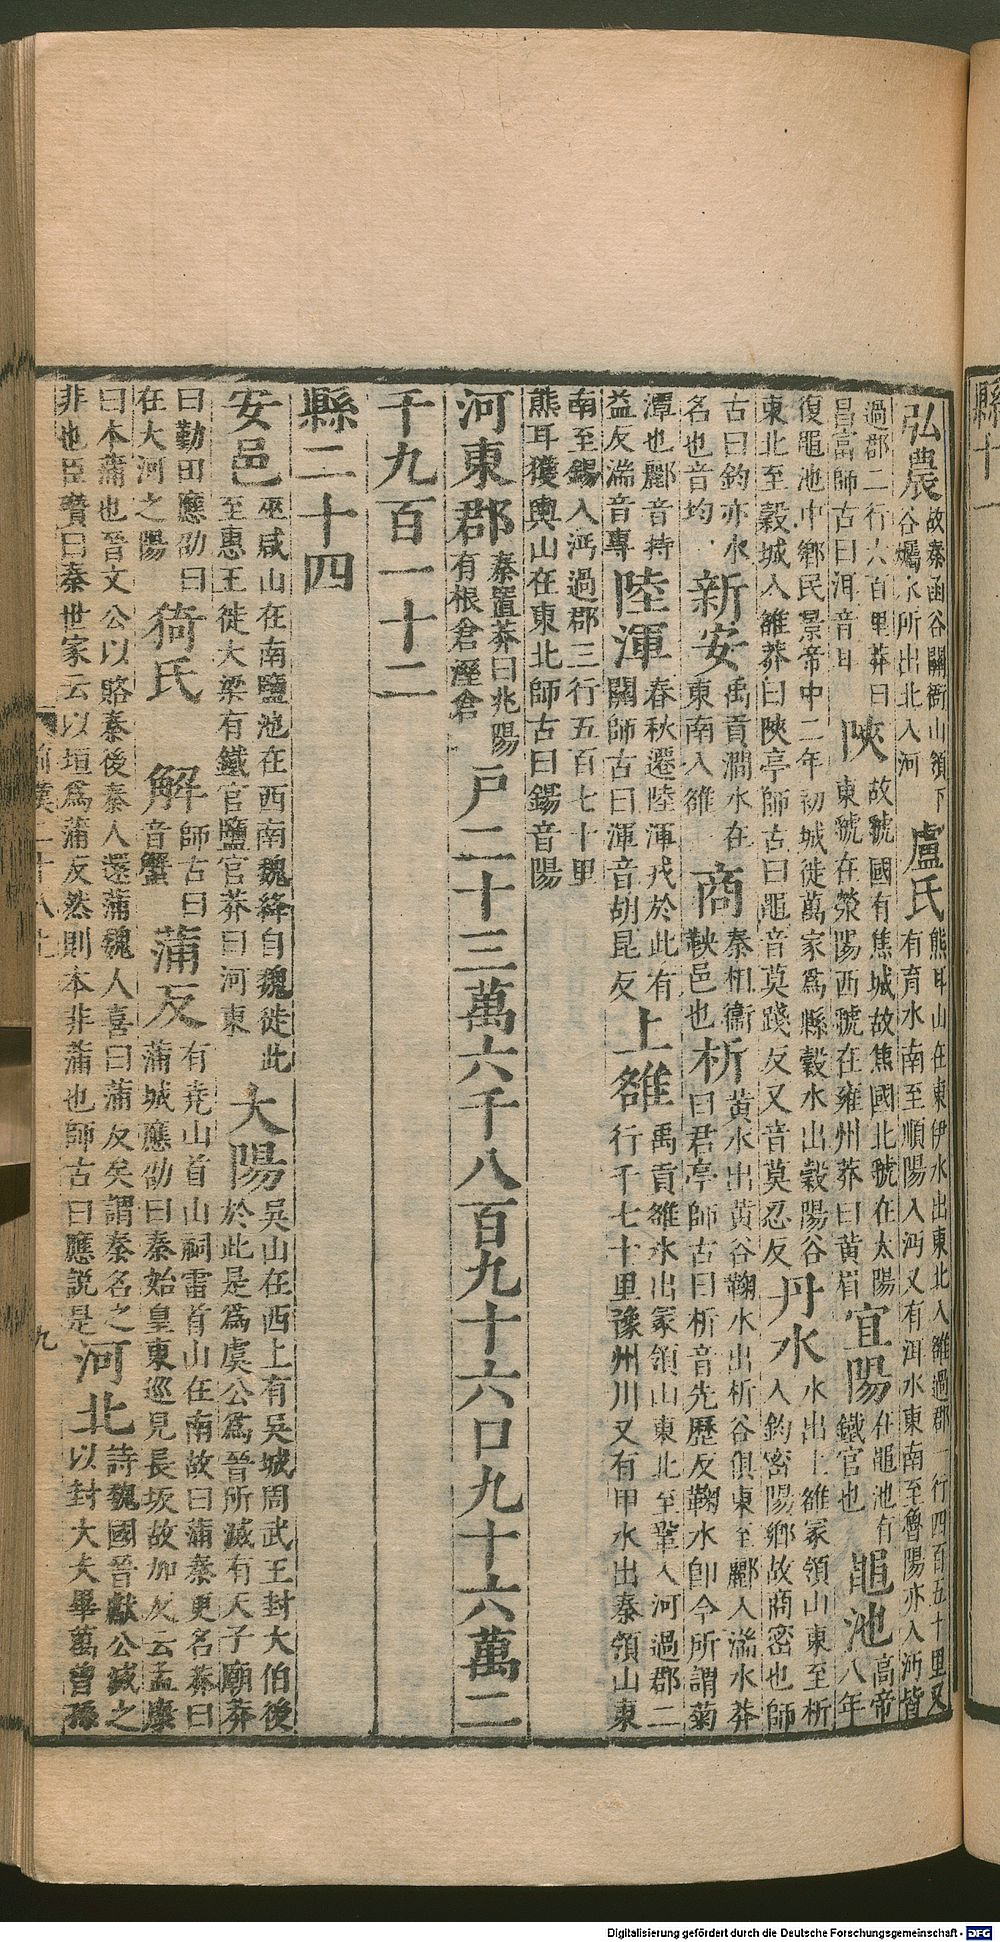 弘農故秦函谷關衙山領下谷爥水所出北入河 盧氏熊耳山在東伊水出東北入雒過郡一行四百五十里又有育水南至順陽入沔又有洱水東南至魯陽亦入沔皆
過郡二行六百里莽曰昌富師古曰洱音耳 陝故虢國有焦城故焦國北虢在大陽東虢在滎陽西虢在雍州莽曰黃眉 宜陽在黽池有鐵官也 黽池高帝八年
復黽池中鄉民景帝中二年初城徙萬家爲縣穀水出穀陽谷東北至穀城入雒莽曰陝亭師古曰黽音莫踐反又音莫忍反 丹水水出上雒冢領山東至析入鈞密陽鄉故商密也師
古曰鈞亦水名也音均 新安禹貢澗水在東南入雒 商秦相衞鞅邑也 析黃水出黃谷鞠水出析谷俱東至酈入湍水莽曰君亭師古曰析音先歷反鞠水卽今所謂菊
潭也酈音持益反湍音專 陸渾春秋遷陸渾戎於此有關師古曰渾音胡昆反 上雒禹貢雒水出冢領山東北至鞏入河過郡二行千七十里豫州川又有甲水出秦領山東
南至錫入沔過郡三行五百七十里熊耳獲輿山在東北師古曰錫音陽
河東郡秦置莽曰兆陽有根倉溼倉 戶二十三萬六千八百九十六口九十六萬二
千九百一十二
縣二十四
安邑巫咸山在南鹽池在西南魏絳自魏徙此至惠王徙大梁有鐵官鹽官莽曰河東 大陽吳山在西上有吳城周武王封大伯後於此是爲虞公爲晉所滅有天子廟莽
曰勤田應劭曰在大河之陽 猗氏 解師古曰音蟹 蒲反有堯山首山祠雷首山在南故曰蒲秦更名莽曰蒲城應劭曰秦始皇東巡見長坂故加反云孟康
曰本蒲也晉文公以賂秦後秦人還蒲魏人喜曰蒲反矣謂秦名之非也臣瓚曰秦世家云以垣爲蒲反然則本非蒲也師古曰應說是 河北詩魏國晉獻公滅之以封大夫畢萬曾孫
九
縣十一
Digitalisierung gefördert durch die Deutsche Forschungsgemeinschaft - DFG